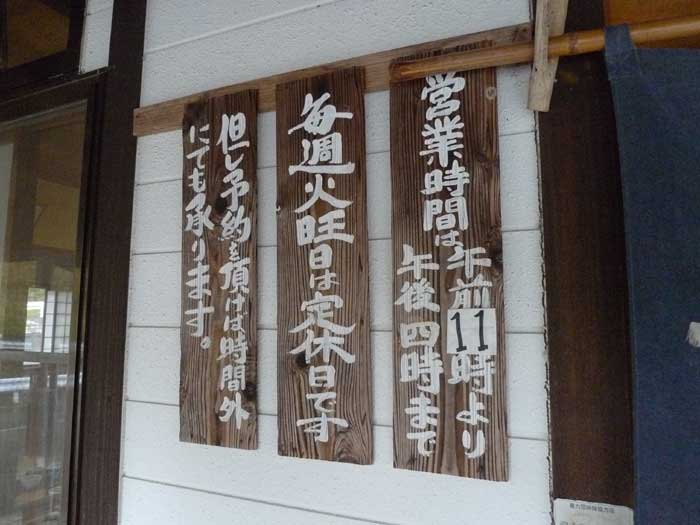 営業時間は午前11時より
午後四時まで
毎週火旺日は定休日です
但し予約を頂けば時間外
にても承ります。